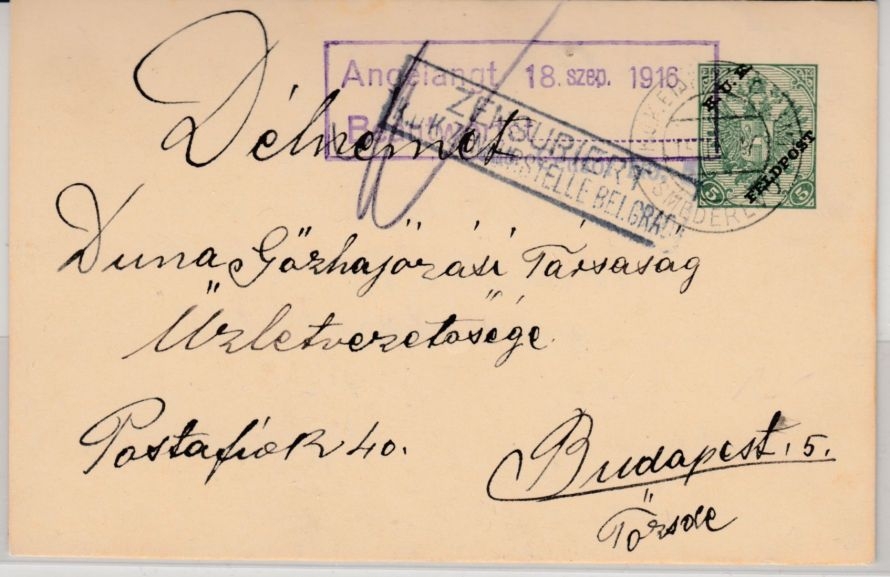 Angelangt 18. szep. 1916
ZENSURIERT
ZENSURSTELLE BELGRAD
K.U.K.
FELDPOST
5 5
Délnémet
Duna Gőzhajózási Társaság
Üzletvezetősége
Postafiók 40.
Budapest. 5.
Tőzsde